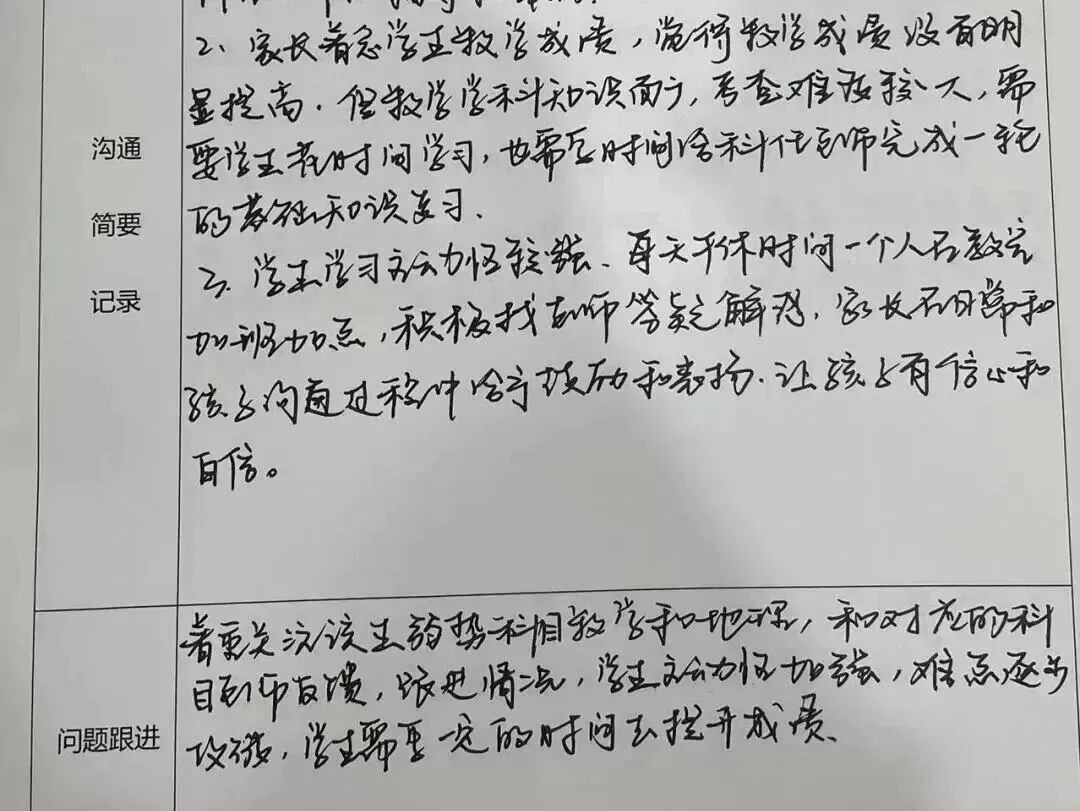 2、家长着急学生数学成绩，觉得数学成绩没有明
显提高．但数学学科知识面广，考查难度较大，需
要学生花时间学习，也需要时间给科任老师完成一轮
的基础知识复习．
沟通
简要
记录
3．学生学习主动性较强、每天午休时间一个人在教室
加班加点，积极找老师答疑解惑，家长在日常和
孩子沟通过程中给予鼓励和表扬．让孩子有信心和
自信。
着重关注该生弱势科目数学和地理，和对应的科
目老师反馈，跟进情况，学生主动性加强，难点逐步
问题跟进
攻破，学生需要一定的时间去提升成绩．